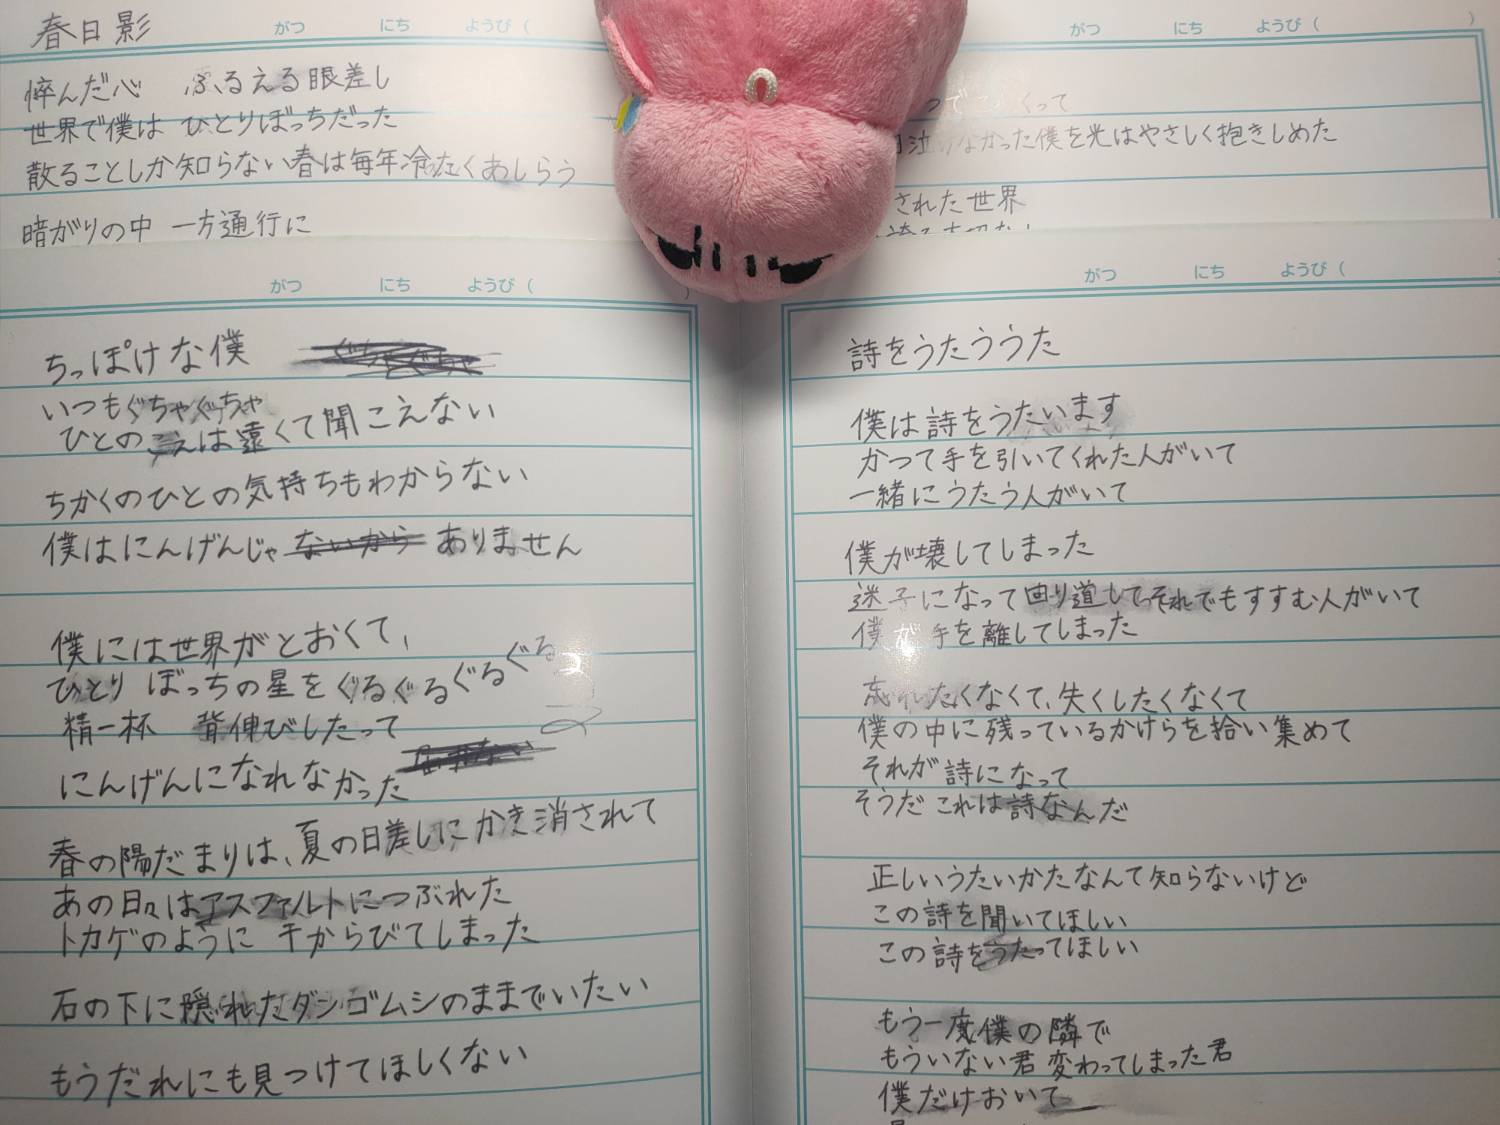 春日影
がつ にち ようび (
悴んだ心 ふるえる眼差し
世界で僕は ひとりぼっちだった
散ることしか知らない春は毎年冷たくあしらう
暗がりの中 一方通行に
がつ にち ようび ( )
つで くって
泣けなかった僕を光はやさしく抱きしめた
された世界
がつ にち ようび ( )
ちっぽけな僕 ぐちゃぐちゃ
いつもぐちゃぐっちゃ
ひとのこえは遠くて聞こえない
ちかくのひとの気持ちもわからない
僕はにんげんじゃないから ありません
僕には世界がとおくて、
ひとりぼっちの星をぐるぐるぐるぐる
精一杯 背伸びしたって
にんげんになれなかった
春の陽だまりは、夏の日差しにかき消されて
あの日々はアスファルトにつぶれた
トカゲのように 干からびてしまった
石の下に隠れたダンゴムシのままでいたい
もうだれにも見つけてほしくない
がつ にち ようび (
詩をうたううた
僕は詩をうたいます
かつて手を引いてくれた人がいて
一緒にうたう人がいて
僕が壊してしまった
迷子になって回り道してそれでもすすむ人がいて
僕が手を離してしまった
忘れたくなくて、失くしたくなくて
僕の中に残っているかけらを拾い集めて
それが詩になって
そうだ これは詩なんだ
正しいうたいかたなんて知らないけど
この詩を聞いてほしい
この詩をうたってほしい
もう一度僕の隣で
もういない君 変わってしまった君
僕だけおいて